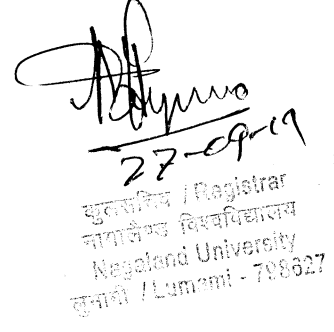 27-09-19
कुलसचिव / Registrar
नागालैण्ड विश्वविद्यालय
Nagaland University
लुमामी / Lumami - 798627